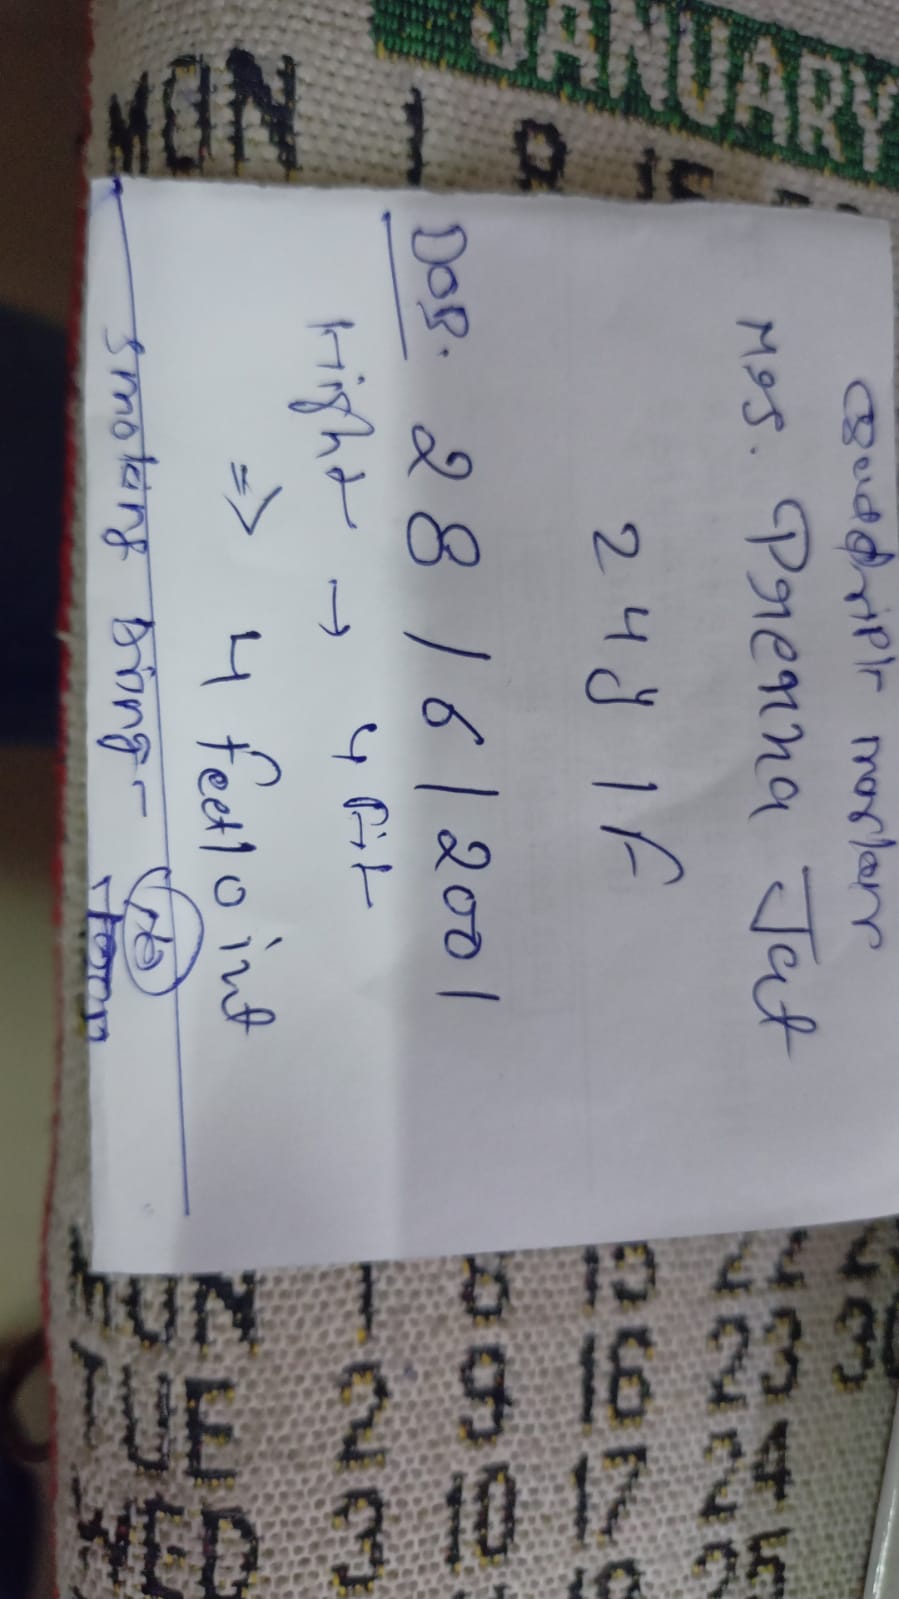 Quadriple marker
Mrs. Prerna Jat
24y / F
DOB. 28/6/2001
Hight → 4 fit
=> 4 feet 10 int
Smoking
No
JANUARY
MON 1 8 15
MON 1 8 15 22
TUE 2 9 16 23 30
WED 3 10 17 24
25